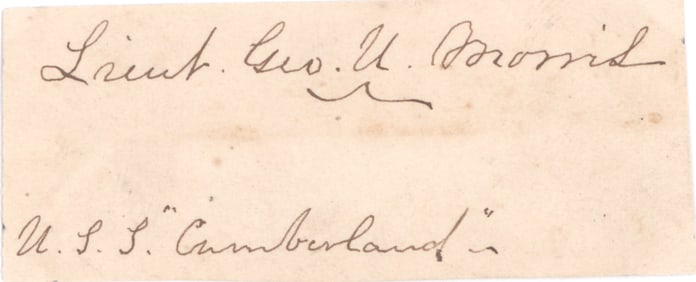 Lieut. Geo. U. Morris
U. S. S. "Cumberland"